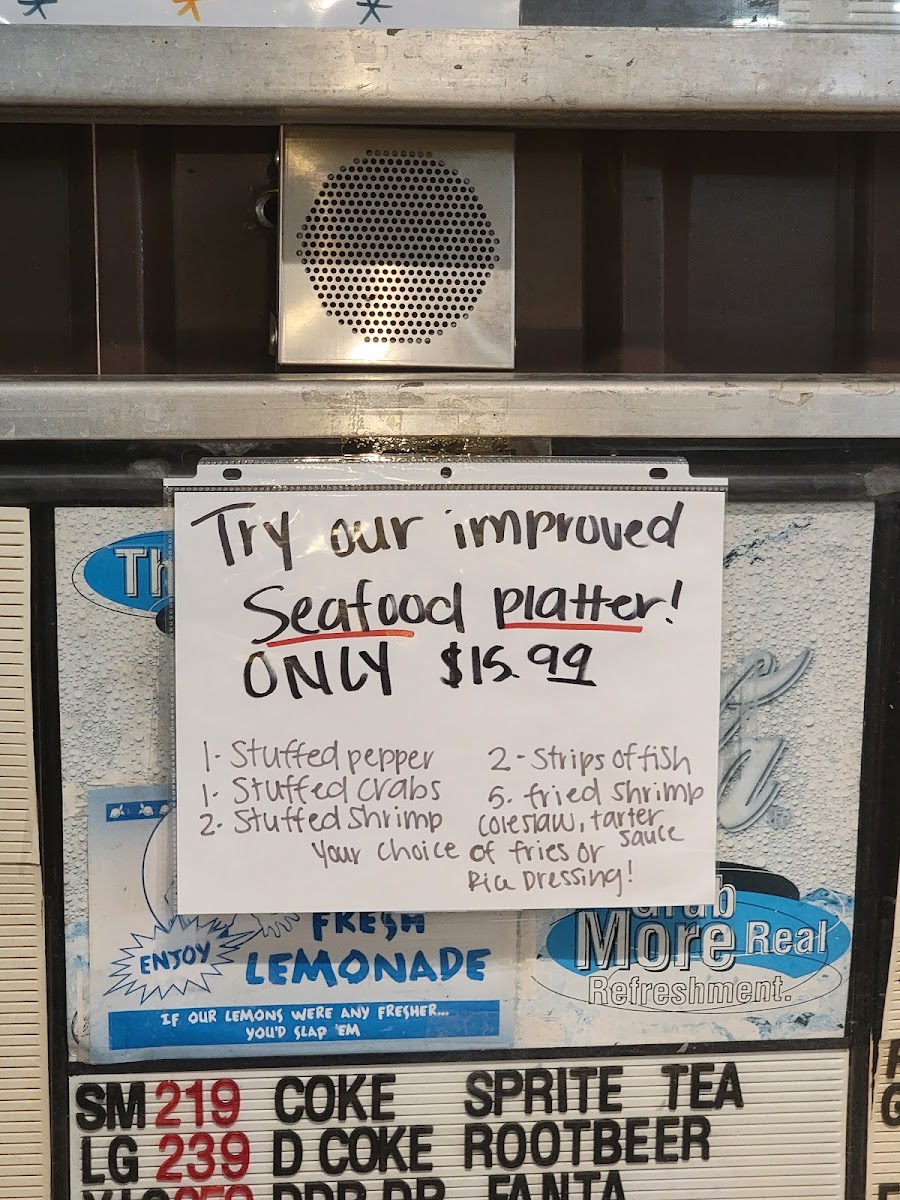 Try our improved
Seafood platter!
ONLY $15.99
1- Stuffed pepper
1- Stuffed crabs
2- Stuffed Shrimp
2- Strips of fish
5- fried shrimp
coleslaw, tarter sauce
Your choice of fries or
Rice Dressing!
Th
ENJOY
FRESH
LEMONADE
IF OUR LEMONS WERE ANY FRESHER...
YOU'D SLAP 'EM
Grab
More Real
Refreshment.
SM 219 COKE SPRITE TEA
LG 239 D COKE ROOTBEER
FANTA